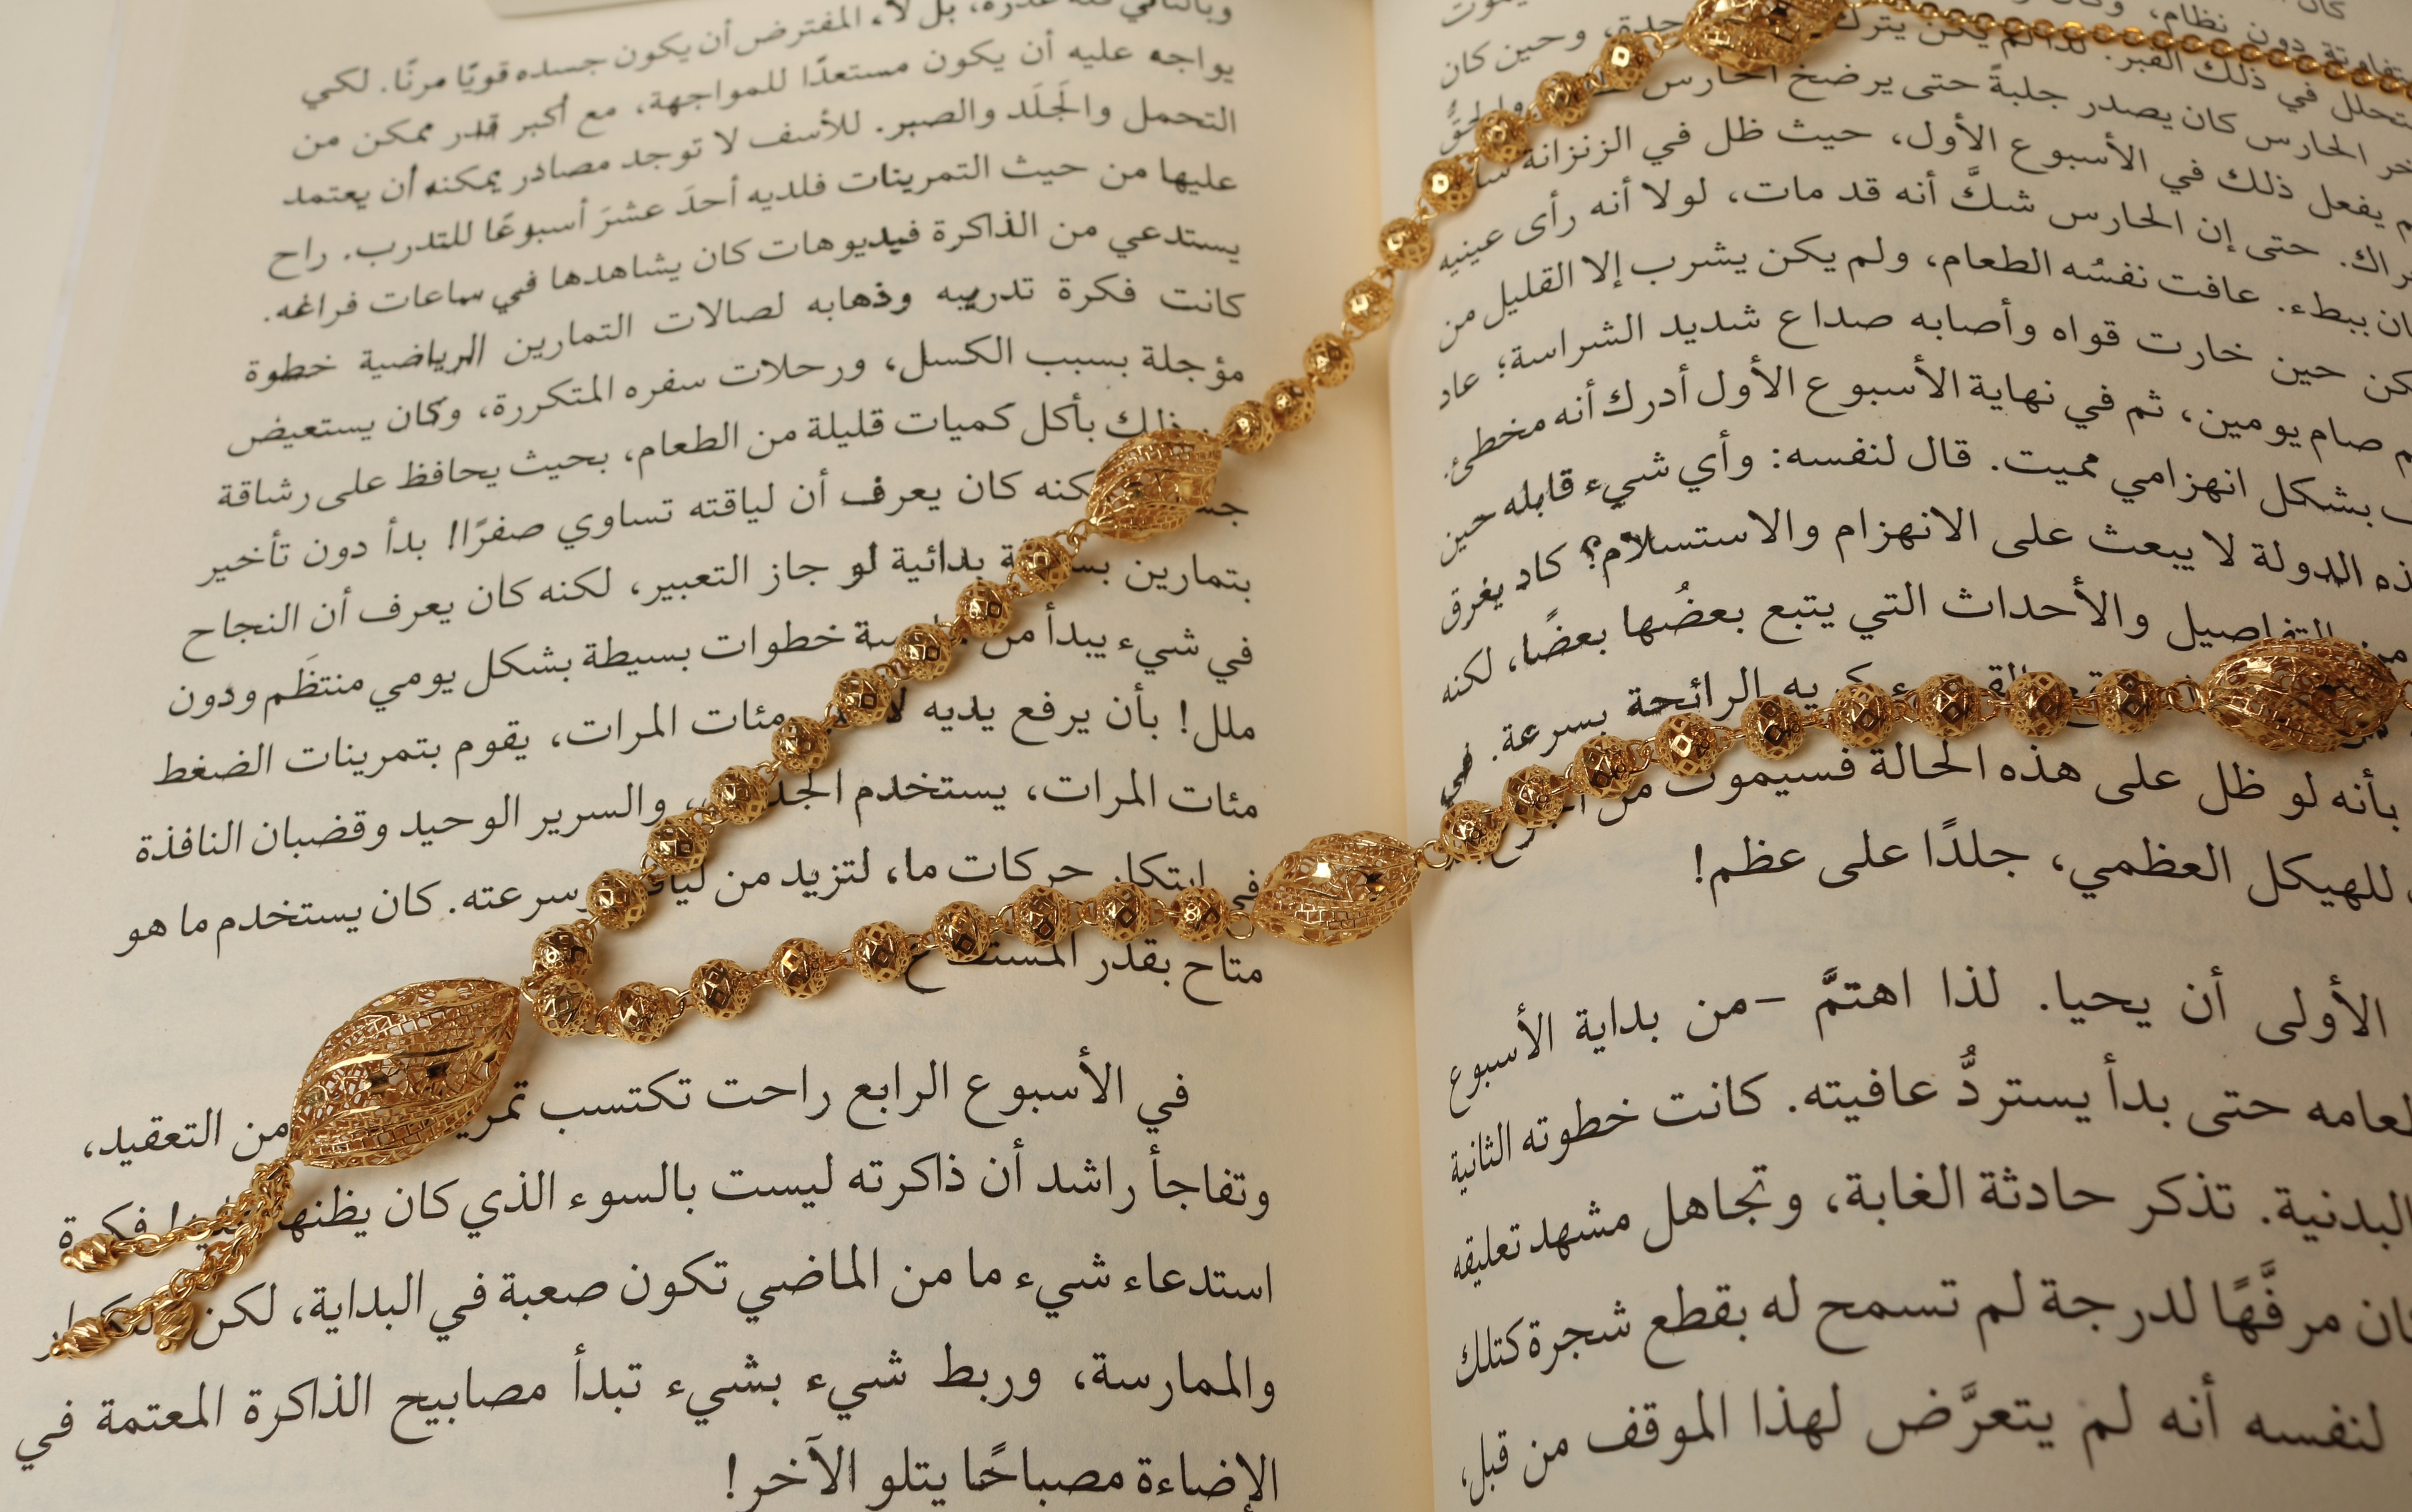 كان
يموت
متفاوتة دون نظام، وكان
يتحلل في ذلك القبر. لذا لم يكن يترك حدة، وحين كان
الحارس كان يصدر جلبةً حتى يرضخ الحارس
يفعل ذلك في الأسبوع الأول، حيث ظل في الزنزانة
حتى إن الحارس شكَّ أنه قد مات، لولا أنه رأى عينيه
ببطء. عافت نفسُه الطعام، ولم يكن يشرب إلا القليل من
حين خارت قواه وأصابه صداع شديد الشراسة؛ عاد
صام يومين، ثم في نهاية الأسبوع الأول أدرك أنه مخطئ.
بشكل انهزامي مميت. قال لنفسه: وأي شيء قابله حين
الدولة لا يبعث على الانهزام والاستسلام؟ كاد يغرق
من التفاصيل والأحداث التي يتبع بعضُها بعضًا، لكنه
كريه الرائحة بسرعة. في
بأنه لو ظل على هذه الحالة فسيموت من
للهيكل العظمي، جلدًا على عظم!
الأولى أن يحيا. لذا اهتمَّ –من بداية الأسبوع
حتى بدأ يستردُّ عافيته. كانت خطوته الثانية
البدنية. تذكر حادثة الغابة، وتجاهل مشهد تعليقه
مرفَّهًا لدرجة لم تسمح له بقطع شجرة كتلك
لنفسه أنه لم يتعرَّض لهذا الموقف من قبل،
بل لاء المفترض أن يكون جسده قويًا مرنًا. لكي
يواجه عليه أن يكون مستعدًا للمواجهة، مع أكبر قدر ممكن من
التحمل والجَلَد والصبر. للأسف لا توجد مصادر يمكنه أن يعتمد
عليها من حيث التمرينات فلديه أحدَ عشرَ أسبوعًا للتدرب. راح
يستدعي من الذاكرة فيديوهات كان يشاهدها في ساعات فراغه.
كانت فكرة تدريبه وذهابه لصالات التمارين الرياضية خطوة
مؤجلة بسبب الكسل، ورحلات سفره المتكررة، وكان يستعيض
ذلك بأكل كميات قليلة من الطعام، بحيث يحافظ على رشاقة
كان يعرف أن لياقته تساوي صفرًا! بدأ دون تأخير
بتمارين بدائية لو جاز التعبير، لكنه كان يعرف أن النجاح
في شيء يبدأ من خطوات بسيطة بشكل يومي منتظَم ودون
ملل! بأن يرفع يديه مئات المرات، يقوم بتمرينات الضغط
مئات المرات، يستخدم والسرير الوحيد وقضبان النافذة
في ابتكار حركات ما، لتزيد من وسرعته. كان يستخدم ما هو
متاح بقدر المستطاع
في الأسبوع الرابع راحت تكتسب من التعقيد،
وتفاجأ راشد أن ذاكرته ليست بالسوء الذي كان يظنه فكرة
استدعاء شيء ما من الماضي تكون صعبة في البداية، لكن
والممارسة، وربط شيء بشيء تبدأ مصابيح الذاكرة المعتمة في
الإضاءة مصباحًا يتلو الآخر!